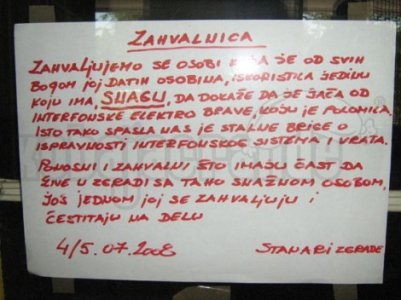 ZAHVALNICA
ZAHVALJUJEMO SE OSOBI KOJA JE OD SVIH
BOGOM JOJ DATIH OSOBINA, ISKORISTILA JEDINU
KOJU IMA, SNAGU, DA DOKAŽE DA JE JAČA OD
INTERFONSKE ELEKTRO BRAVE, KOJU JE POLOMILA.
ISTO TAKO SPASLA NAS JE STALNE BRIGE O
ISPRAVNOSTI INTERFONSKOG SISTEMA I VRATA.
PONOSNI I ZAHVALNI ŠTO IMAJU ČAST DA
ŽIVE U ZGRADI SA TAKO SNAŽNOM OSOBOM,
JOŠ JEDNOM JOJ SE ZAHVALJUJU I
ČESTITAJU NA DELU
4/5.07.2008 STANARI ZGRADE